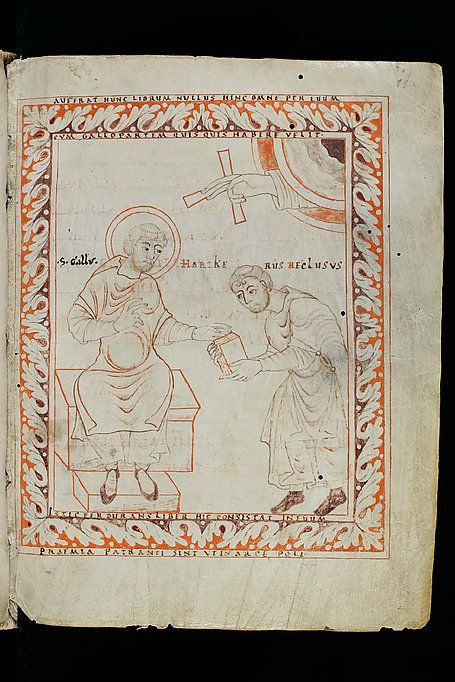 AUFERAT HUNC LIBRUM NULLUS HINC OMNE PER EUUM
CUM GALLO PARTEM QUISQUIS HABERE VELIT
.S. Gallus HARTKERUS RECLUSUS
ISTIC PERDURANS LIBER HIC CONSISTAT IN EUUM
PRAEMIA PATRANTI SINT UT IN ARCE POLI